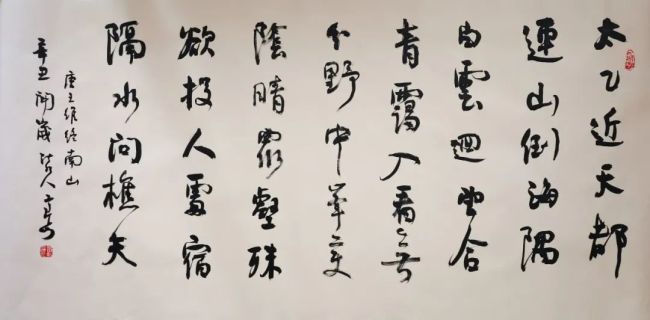 太乙近天都
連山倒海隅
白雲迴望合
青靄入看無
分野中峯變
陰晴眾壑殊
欲投人處宿
隔水問樵夫
唐王維終南山
辛丑開歲